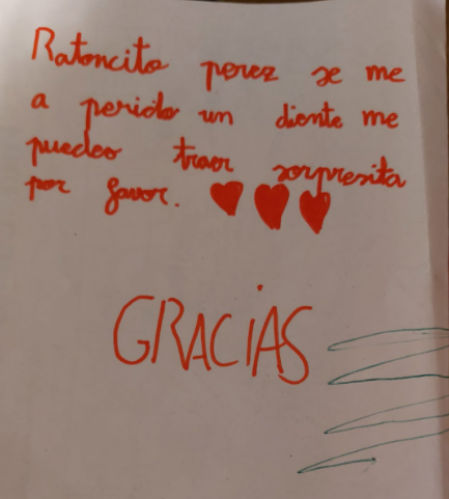 Ratoncito perez se me
a perido un diente me
puedeo traer sorpresita
por favor.
GRACIAS